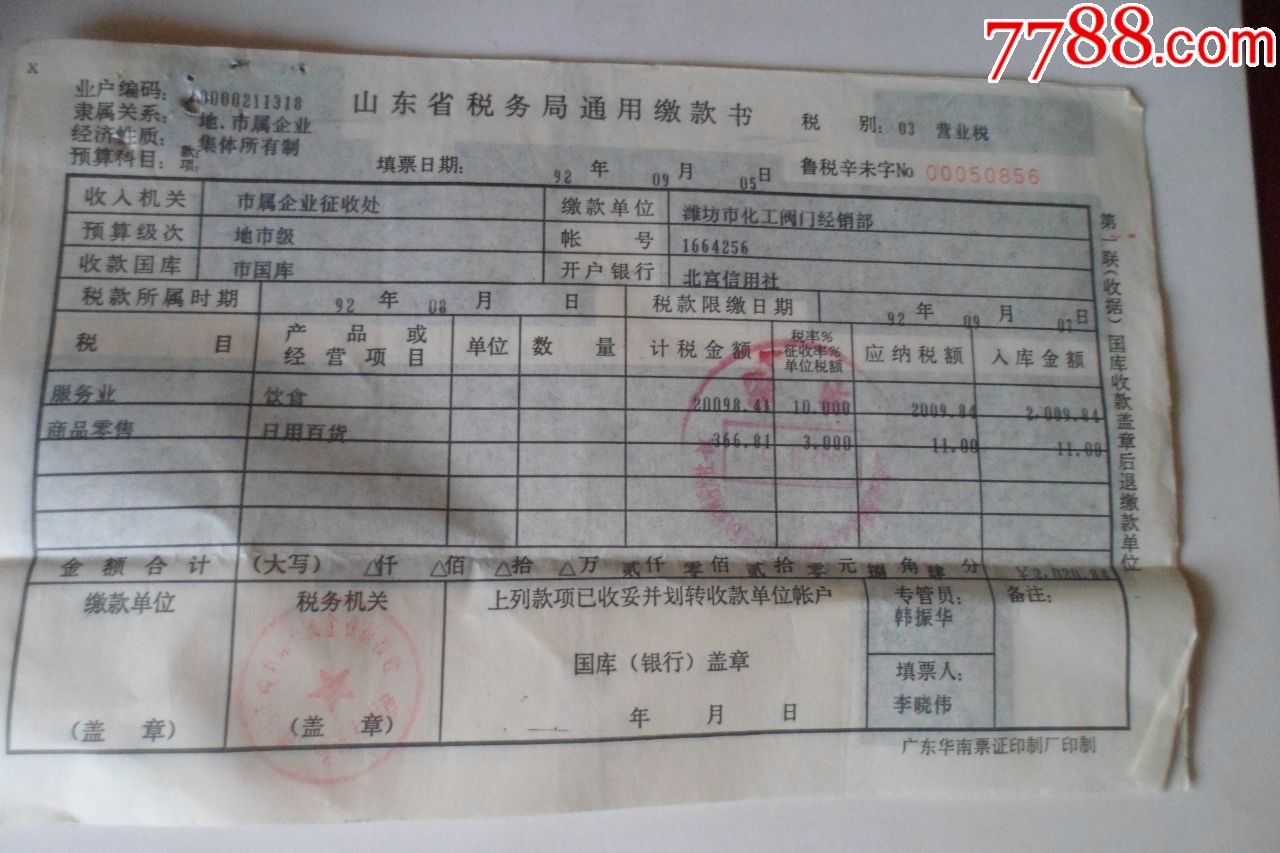 7788.com
x
业户编码: 0000211318
隶属关系: 地.市属企业
经济性质: 集体所有制
预算科目: 款: 项:
山东省税务局通用缴款书
税 别: 03 营业税
填票日期: 92 年 09 月 05 日
鲁税辛未字No 00050856
收入机关 市属企业征收处 缴款单位 潍坊市化工阀门经销部
预算级次 地市级 帐 号 1664256
收款国库 市国库 开户银行 北宫信用社
税款所属时期 92 年 08 月 日 税款限缴日期 92 年 09 月 07 日
税 目 产品或经营项目 单位 数 量 计税金额 税率% 征收率% 单位税额 应纳税额 入库金额
服务业 饮食 20098.41 10.000 2009.84 2,009.84
商品零售 日用百货 366.81 3.000 11.00 11.00
金额合计 (大写) △仟 △佰 △拾 △万 贰仟 零佰 贰拾 零元 捌角 肆分 ¥2,020.84
缴款单位 税务机关 上列款项已收妥并划转收款单位帐户 专管员: 备注:
韩振华
国库(银行)盖章
填票人:
李晓伟
(盖 章) (盖 章) 年 月 日
广东华南票证印制厂印制
第一联(收据)国库收款盖章后退缴款单位